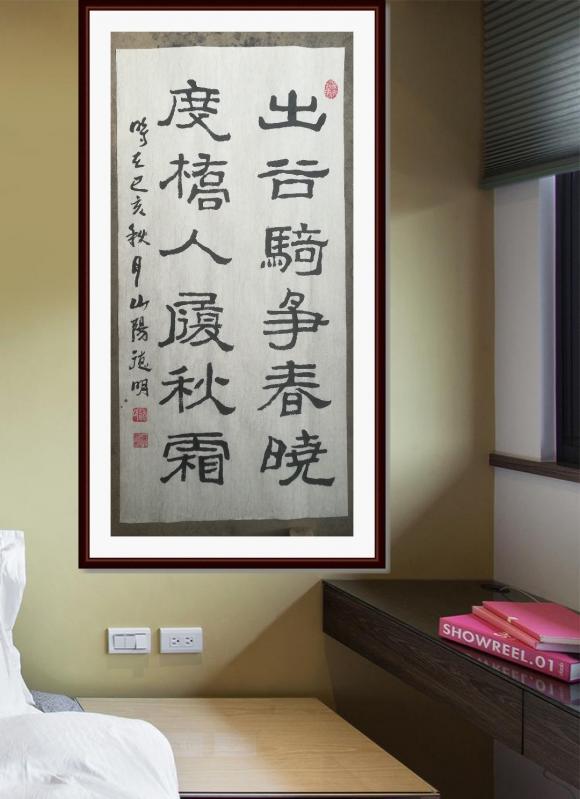 出谷騎爭春曉
度橋人履秋霜
時在己亥秋月山陽德明
SHOWREEL.01